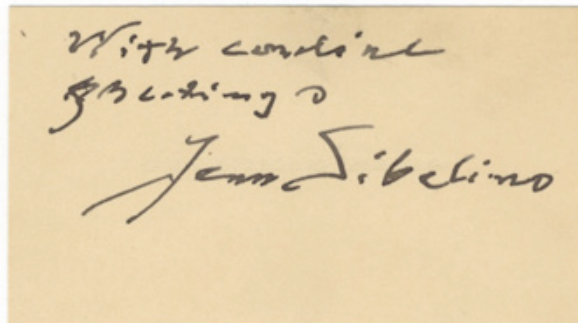 With cordial
greetings
Jean Sibelius